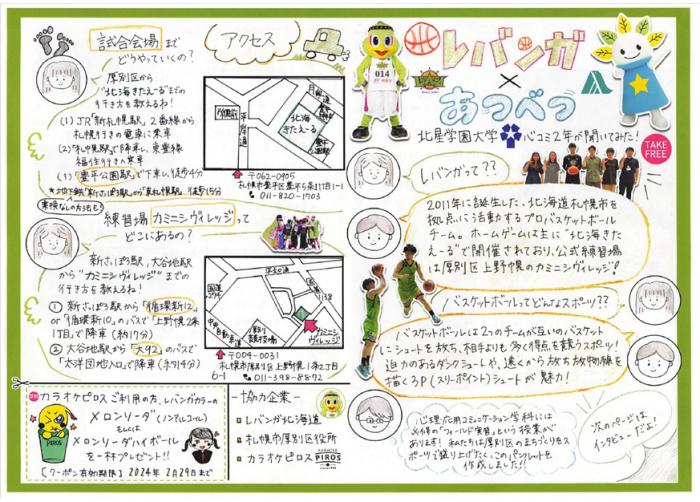 レバンガ
×
あつべつ
北星学園大学 心コミ2年が聞いてみた!
TAKE FREE
レバンガって??
2011年に誕生した、北海道札幌市を
拠点に活動するプロバスケットボール
チーム。ホームゲームは主に"北海きた
えーる"で開催されており、公式練習場
は厚別区上野幌のカミニシヴィレッジ!
バスケットボールってどんなスポーツ??
バスケットボールは2つのチームが互いのバスケット
にシュートを放ち、相手よりも多く得点を競うスポーツ!
迫力のあるダンクシュートや、遠くから放つ放物線を
描く3P(スリーポイント)シュートが魅力!
心理・応用コミュニケーション学科には
必修の"フィールド実習"という授業が
あります! 私たちは厚別区のまちづくりをス
ポーツで盛り上げたく、このパンフレットを
作成しました!!
次のページは
インタビューだよ!
アクセス
試合会場まで
どうやっていくの?
厚別区から
"北海きたえーる"までの
行き方を教えるね!
(1) JR「新札幌駅」2番線から
札幌行きの電車に乗車
(2)「札幌駅」で降車し、東豊線
福住行きに乗車
豊平公園駅で下車し、徒歩4分
北海
きたえーる
〒062-0905
札幌市豊平区豊平5条11丁目1-1
011-820-1703
練習場カミニシヴィレッジって
どこにあるの?
新さっぽろ駅、大谷地駅
から"カミニシヴィレッジ"までの
行き方を教えるね!
① 新さっぽろ駅から「循環新12」
or「循環新10」のバスで「上野幌2条
1丁目」で降車(約17分)
② 大谷地駅から「大92」のバスで
「大洋団地入口」で降車(約14分)
カミニシ
ヴィレッジ
〒004-0031
札幌市厚別区上野幌1条2丁目
6-1
011-398-8892
カラオケピロスご利用の方、レバンガカラーの
メロンソーダ(ノンアルコール)
もしくは
メロンソーダハイボール
を一杯プレゼント!!
【クーポン有効期限】2024年2月29日まで
-協力企業-
レバンガ北海道
札幌市厚別区役所
カラオケピロス
PIROS
014